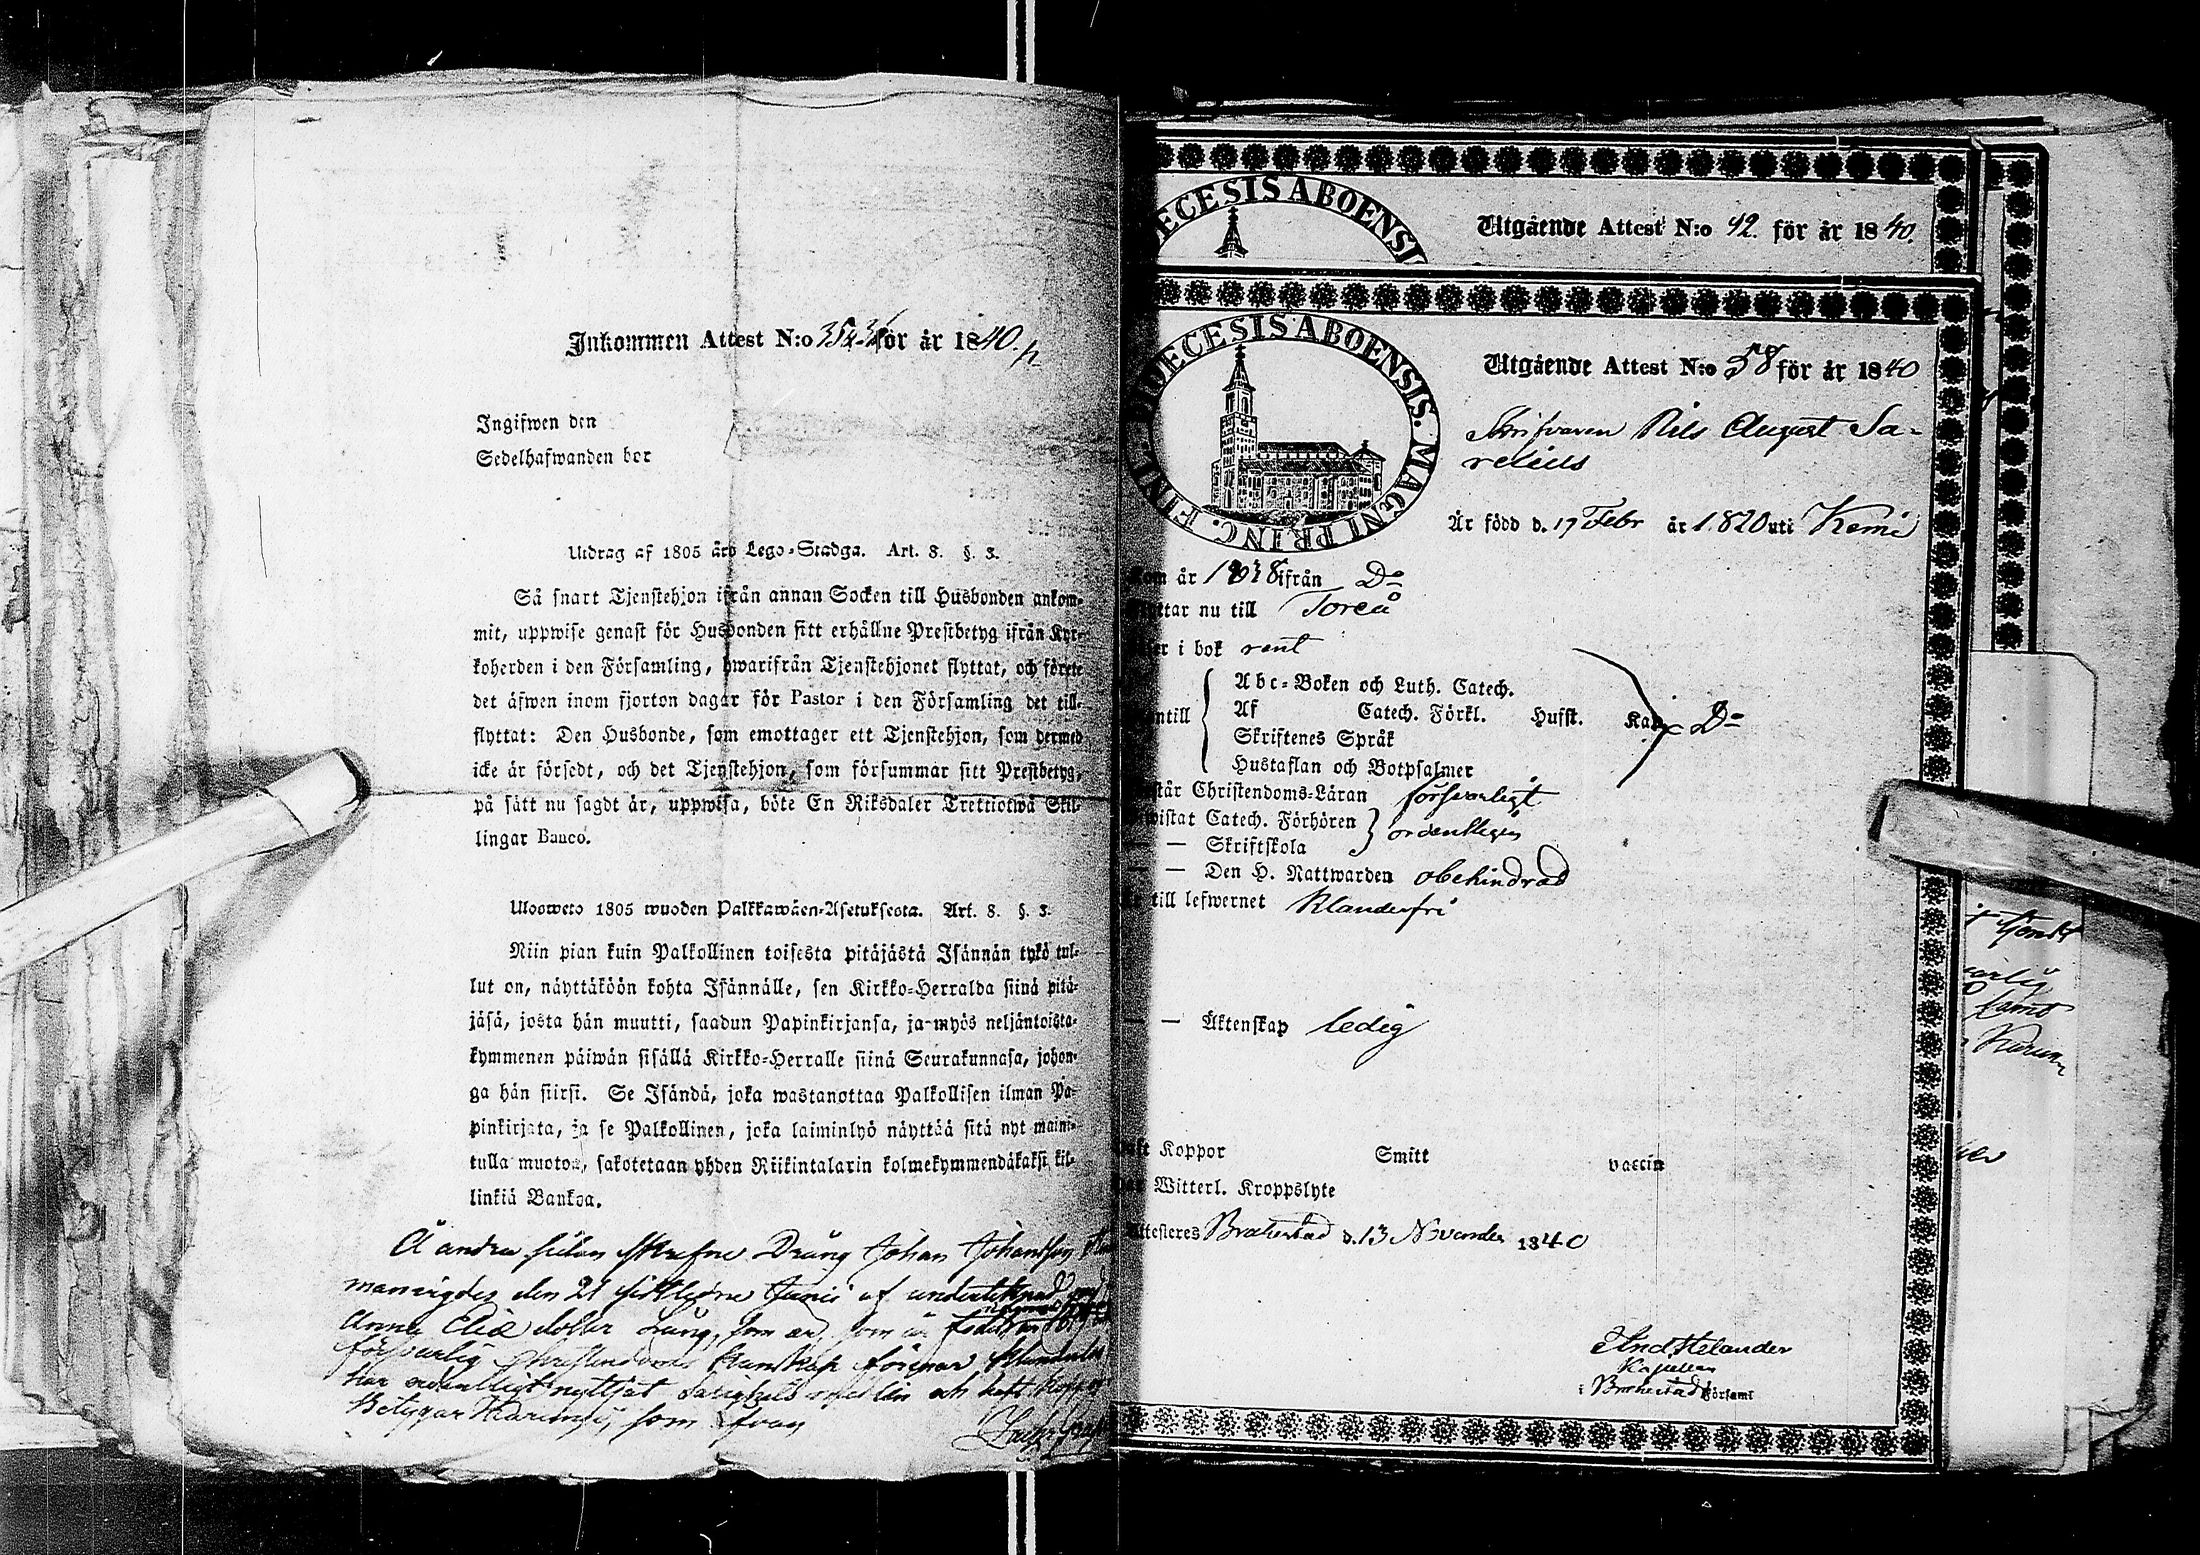 Inkommen Attest N:o 35 & 36 för år 1840.
Ingifwen den
Sedelhafwanden bor
Utdrag af 1805 års Lego-Stadga. Art. 8. §. 3.
Så snart Tjenstehjon ifrån annan Socken till Husbonden ankom-
mit, uppwise genast för Husbonden sitt erhållne Prestbetyg ifrån Kyr-
koherden i den Församling, hwarifrån Tjenstehjonet flyttat, och förete
det äfwen inom fjorton dagar för Pastor i den Församling det till-
flyttat: Den Husbonde, som emottager ett Tjenstehjon, som dermed
icke är försedt, och det Tjenstehjon, som försummar sitt Prestbetyg,
på sätt nu sagdt är, uppwisa, böte En Riksdaler Trettiotwå Skil-
lingar Banco.
Uloosweto 1805 wuoden Palkkawäen-Asetuksesta. Art. 8. §. 3.
Niin pian kuin Palkollinen toisesta pitäjästä Isännän tykö tul-
lut on, näyttäköön kohta Isännälle, sen Kirkko-Herralda siinä pitä-
jäsä, josta hän muutti, saadun Papinkirjansa, ja myös neljäntoista-
kymmenen päiwän sisällä Kirkko-Herralle siinä Seurakunnasa, johon-
ga hän siirsi. Se Isändä, joka wastanottaa Palkollisen ilman Pa-
pinkirjata, ja se Palkollinen, joka laiminlyö näyttää sitä nyt maini-
tulla muoton, sakotetaan yhden Riikintalarin kolmekymmendäkaksi kil-
linkiä Bankoa.
Å andra sidan skrefne Dräng Johan Johansson
den 21 sistledne Junii af undertecknad
Anna som är, som är
försvarlig Christendoms kunskap
har ordentligt nyttjat Salighets medlen och haft koppor
Betygar Karungi, som ofvan
DIECESIS ABOENSI
Utgående Attest N:o 42. för år 1840.
DIOECESIS ABOENSIS. MAGNI PRINC. FINL.
Utgående Attest N:o 58 för år 1840
Skrifvaren Nils August Sa-
relius
Är född d. 17 Febr år 1820 uti Kemi
Kom år 1838 ifrån Do
Flyttar nu till Toreå
Läser i bok rent
Abc-Boken och Luth. Catech.
Utantill Af Catech. Förkl. Husst. Kap. Do
Skriftenes Språk
Hustaflan och Botpsalmer
Förstår Christendoms-Läran försvarligt
Bewistat Catech. Förhören ordentligen
— — Skriftskola
— — Den H. Nattwarden obehindrad
Är till lefwernet klanderfri
— — Äktenskap ledig
Haft Koppor Smitt vaccin
Har Witterl. Kroppslyte
Attesteres Brahestad d. 13 November 1840
And. Helander
Kapellan
i Brahestads Församl